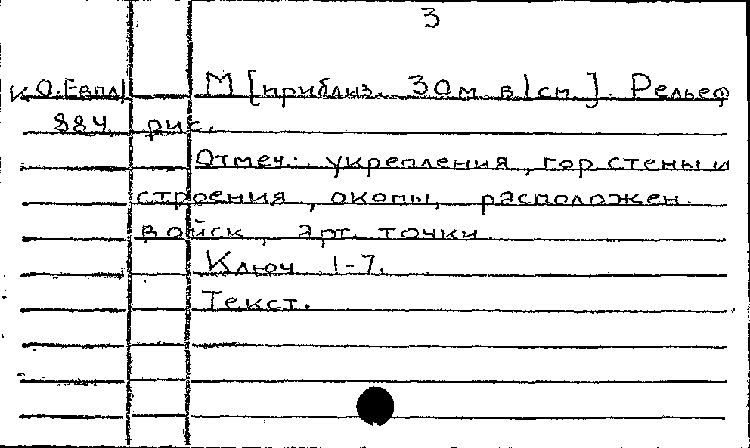 3
К О.Евпл М [приблиз. 30м в 1см.]. Рельеф
884 рис.
Отмеч.: укрепления, гор стены и
строения, окопы, расположен.
войск, арт. точки.
Ключ 1-7.
Текст.